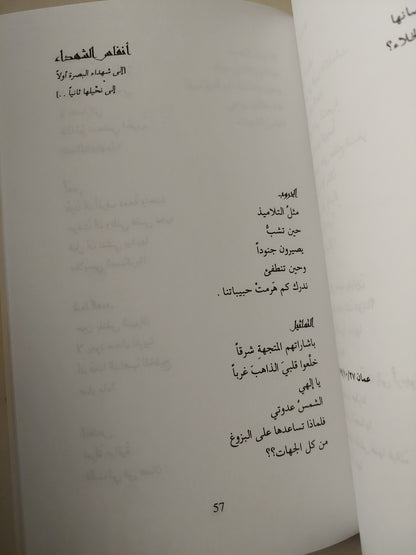 أنفاس الشهداء
(إلى شهداء البصرة أولاً
إلى نخيلها ثانياً ..)
الحروب
مثلُ التلاميذ
حين تشبُّ
يصيرون جنوداً
وحين تنطفئ
ندرك كم هَرمتْ حبيباتنا .
التماثيل
باشاراتهم المتجهةِ شرقاً
خلّعوا قلبيَ الذاهبَ غرباً
يا إلهي
الشمسُ عدوتي
فلماذا تساعدها على البزوغ
من كل الجهات؟؟
57
عمان